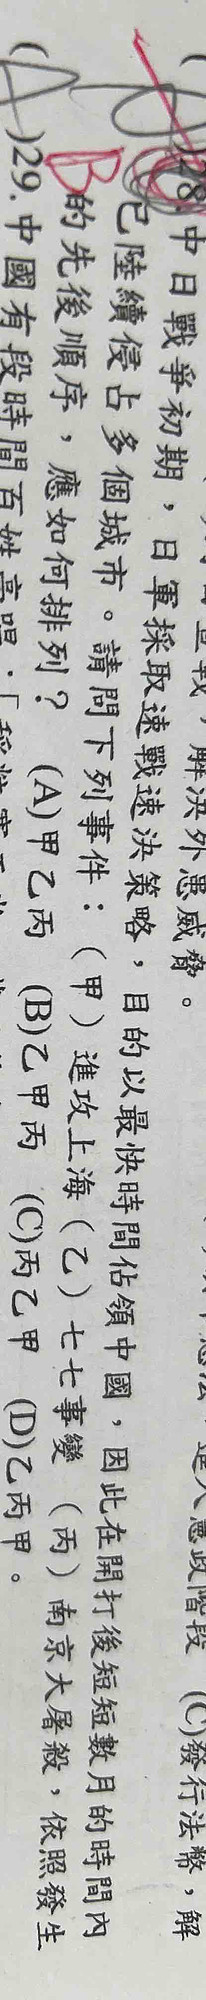 解決外患威脅。
進入憲政階段 (C)發行法幣，解
28.中日戰爭初期，日軍採取速戰速決策略，目的以最快時間佔領中國，因此在開打後短短數月的時間內
已陸續侵占多個城市。請問下列事件：（甲）進攻上海（乙）七七事變 （丙）南京大屠殺，依照發生
B
的先後順序，應如何排列？ (A)甲乙丙 (B)乙甲丙 (C)丙乙甲 (D)乙丙甲。
(A)29.中國有段時間百姓高唱：「